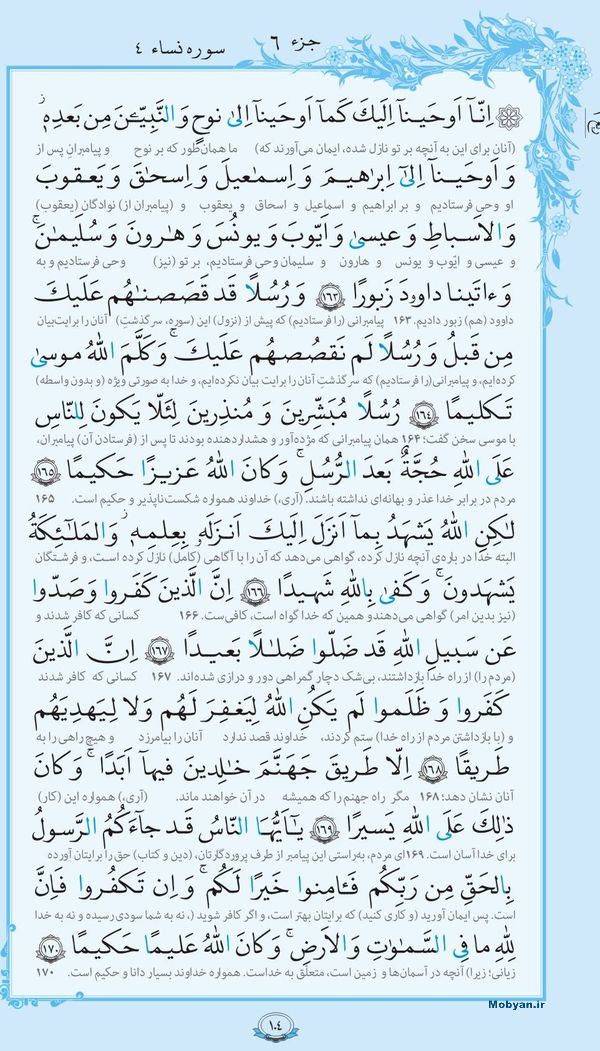 جزء ۶
سوره نساء ۴
اِنّآ اَوحَینآ اِلَیكَ كَمآ اَوحَینآ اِلیٰ نوحٍ وَ النَّبِیّـٖنَ مِن بَعدِهٖ ۚ
(آنان برای این به آنچه بر تو نازل شده، ایمان می‌آورند که) ما همان‌طور که بر نوح و پیامبرانِ پس از
وَ اَوحَینآ اِلیٰٓ اِبراهیمَ وَ اِسمٰعیلَ وَ اِسحٰقَ وَ یَعقوبَ
او وحی فرستادیم و بر ابراهیم و اسماعیل و اسحاق و یعقوب و (پیامبران از) نوادگان (یعقوب)
وَ الاَسباطِ وَ عیسیٰ وَ اَیّوبَ وَ یونُسَ وَ هٰرونَ وَ سُلَیمٰنَ ۚ
و عیسی و ایّوب و یونس و هارون و سلیمان وحی فرستادیم، بر تو (نیز) وحی فرستادیم و به
وَ ءاتَینا داوودَ زَبورًا ﴿۱۶۳﴾ وَ رُسُلًا قَد قَصَصنٰهُم عَلَیكَ
داوود (هم) زبور دادیم. ۱۶۳ پیامبرانی (را فرستادیم) که پیش از (نزول) این (سوره، سرگذشتِ) آنان را برایت‌بیان
مِن قَبلُ وَ رُسُلًا لَم نَقصُصهُم عَلَیكَ ۚ وَ كَلَّمَ اللهُ موسیٰ
کرده‌ایم، و پیامبرانی(را فرستادیم) که سرگذشتِ آنان را برایت بیان نکرده‌ایم، و خدا به صورتی ویژه (و بدون واسطه)
تَكلیمًا ﴿۱۶۴﴾ رُسُلًا مُبَشِّرینَ وَ مُنذِرینَ لِئَلّا یَكونَ لِلنّاسِ
با موسی سخن گفت؛ ۱۶۴ همان پیامبرانی که مژده‌آور و هشداردهنده بودند تا پس از (فرستادن آن) پیامبران،
عَلَی اللهِ حُجَّةٌ بَعدَ الرُّسُلِ ۚ وَ كانَ اللهُ عَزیزًا حَكیمًا ﴿۱۶۵﴾
مردم در برابر خدا عذر و بهانه‌ای نداشته باشند. (آری،) خداوند همواره شکست‌ناپذیر و حکیم است. ۱۶۵
لٰكِنِ اللهُ یَشهَدُ بِمآ اَنزَلَ اِلَیكَ اَنزَلَهٗ بِعِلمِهٖ ۚ وَ المَلٰٓئِكَةُ
البته خدا در باره‌ی آنچه نازل کرده، گواهی می‌دهد که آن را با آگاهی (کامل) نازل کرده است، و فرشتگان
یَشهَدونَ ۚ وَ كَفیٰ بِاللهِ شَهیدًا ﴿۱۶۶﴾ اِنَّ الَّذینَ كَفَروا وَ صَدّوا
(نیز بدین امر) گواهی می‌دهندو همین که خدا گواه است، کافی‌ست. ۱۶۶ کسانی که کافر شدند و
عَن سَبیلِ اللهِ قَد ضَلّوا ضَلٰلًا بَعیدًا ﴿۱۶۷﴾ اِنَّ الَّذینَ
(مردم را) از راه خدا بازداشتند، بی‌شک دچار گمراهی دور و درازی شده‌اند. ۱۶۷ کسانی که کافر شدند
كَفَروا وَ ظَلَموا لَم یَكُنِ اللهُ لِیَغفِرَ لَهُم وَ لا لِیَهدِیَهُم
و (با بازداشتن مردم از راه خدا) ستم کردند، خداوند قصد ندارد آنان را بیامرزد و هیچ راهی را به
طَریقًا ﴿۱۶۸﴾ اِلّا طَریقَ جَهَنَّمَ خٰلِدینَ فیهآ اَبَدًا ۚ وَ كانَ
آنان نشان دهد؛ ۱۶۸ مگر راه جهنم را که همیشه در آن خواهند ماند. (آری،) همواره این (کار)
ذٰلِكَ عَلَی اللهِ یَسیرًا ﴿۱۶۹﴾ یٰٓاَیُّهَا النّاسُ قَد جآءَكُمُ الرَّسولُ
برای خدا آسان است. ۱۶۹ای مردم، به‌راستی این پیامبر از طرف پروردگارتان، (دین و کتاب) حق را برایتان آورده
بِالحَقِّ مِن رَبِّكُم فَـٔامِنوا خَیرًا لَكُم ۚ وَ اِن تَكفُروا فَاِنَّ
است. پس ایمان آورید (و کاری کنید) که برایتان بهتر است، و اگر کافر شوید (، نه به شما سودی رسیده و نه به خدا
لِلّٰهِ ما فِی السَّمٰوٰتِ وَ الاَرضِ ۚ وَ كانَ اللهُ عَلیمًا حَكیمًا ﴿۱۷۰﴾
زیانی؛ زیرا) آنچه در آسمان‌ها و زمین است، متعلّق به خداست. همواره خداوند بسیار دانا و حکیم است. ۱۷۰
Mobyan.ir
۱۰۴